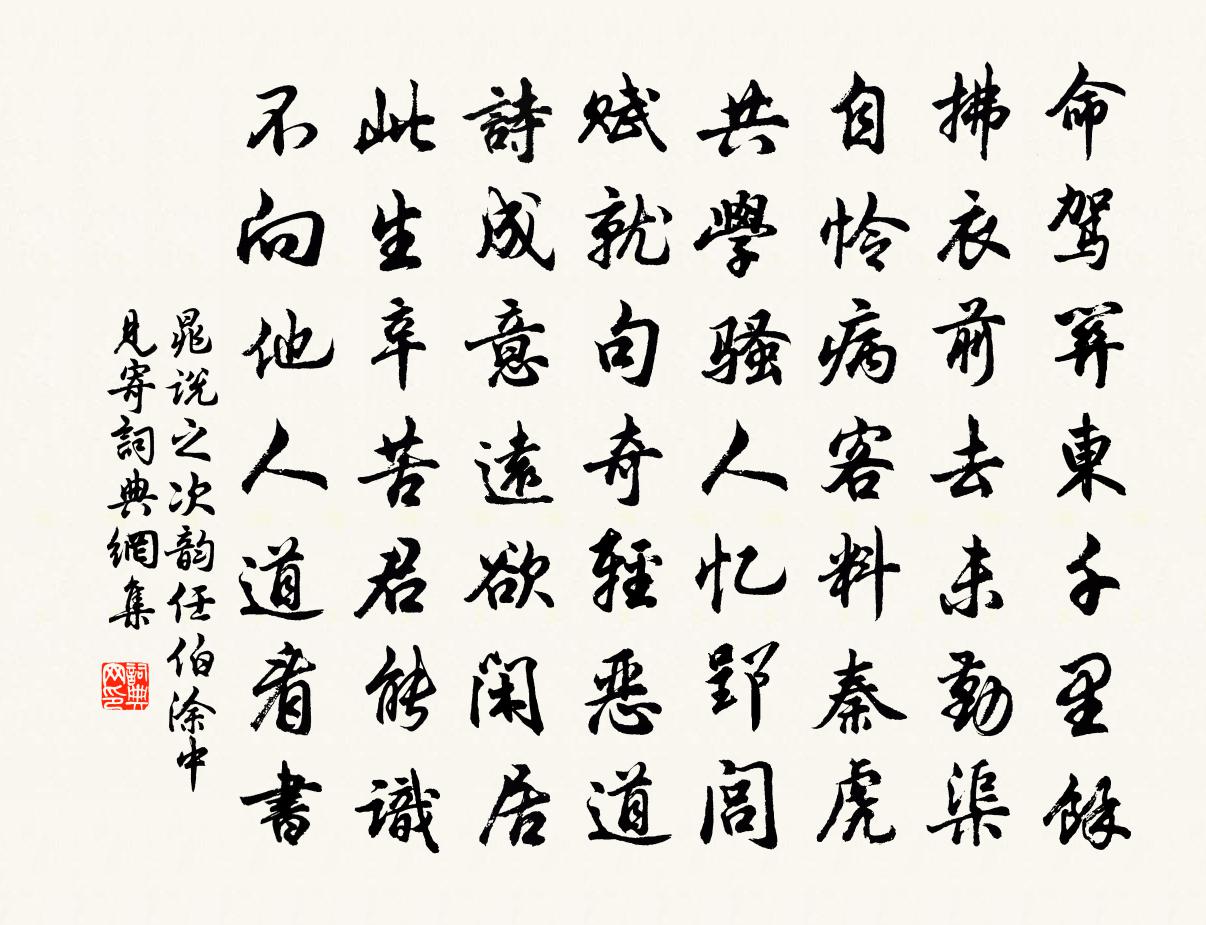 命駕關東千里餘
拂衣前去未勤渠
自怜病客料秦虎
共學騷人忆郢閭
賦就句奇輕惡道
詩成意遠欲閑居
此生辛苦君能識
不向他人道看書
晁说之次韵任伯涂中
見寄詞典網集
詞典
网印